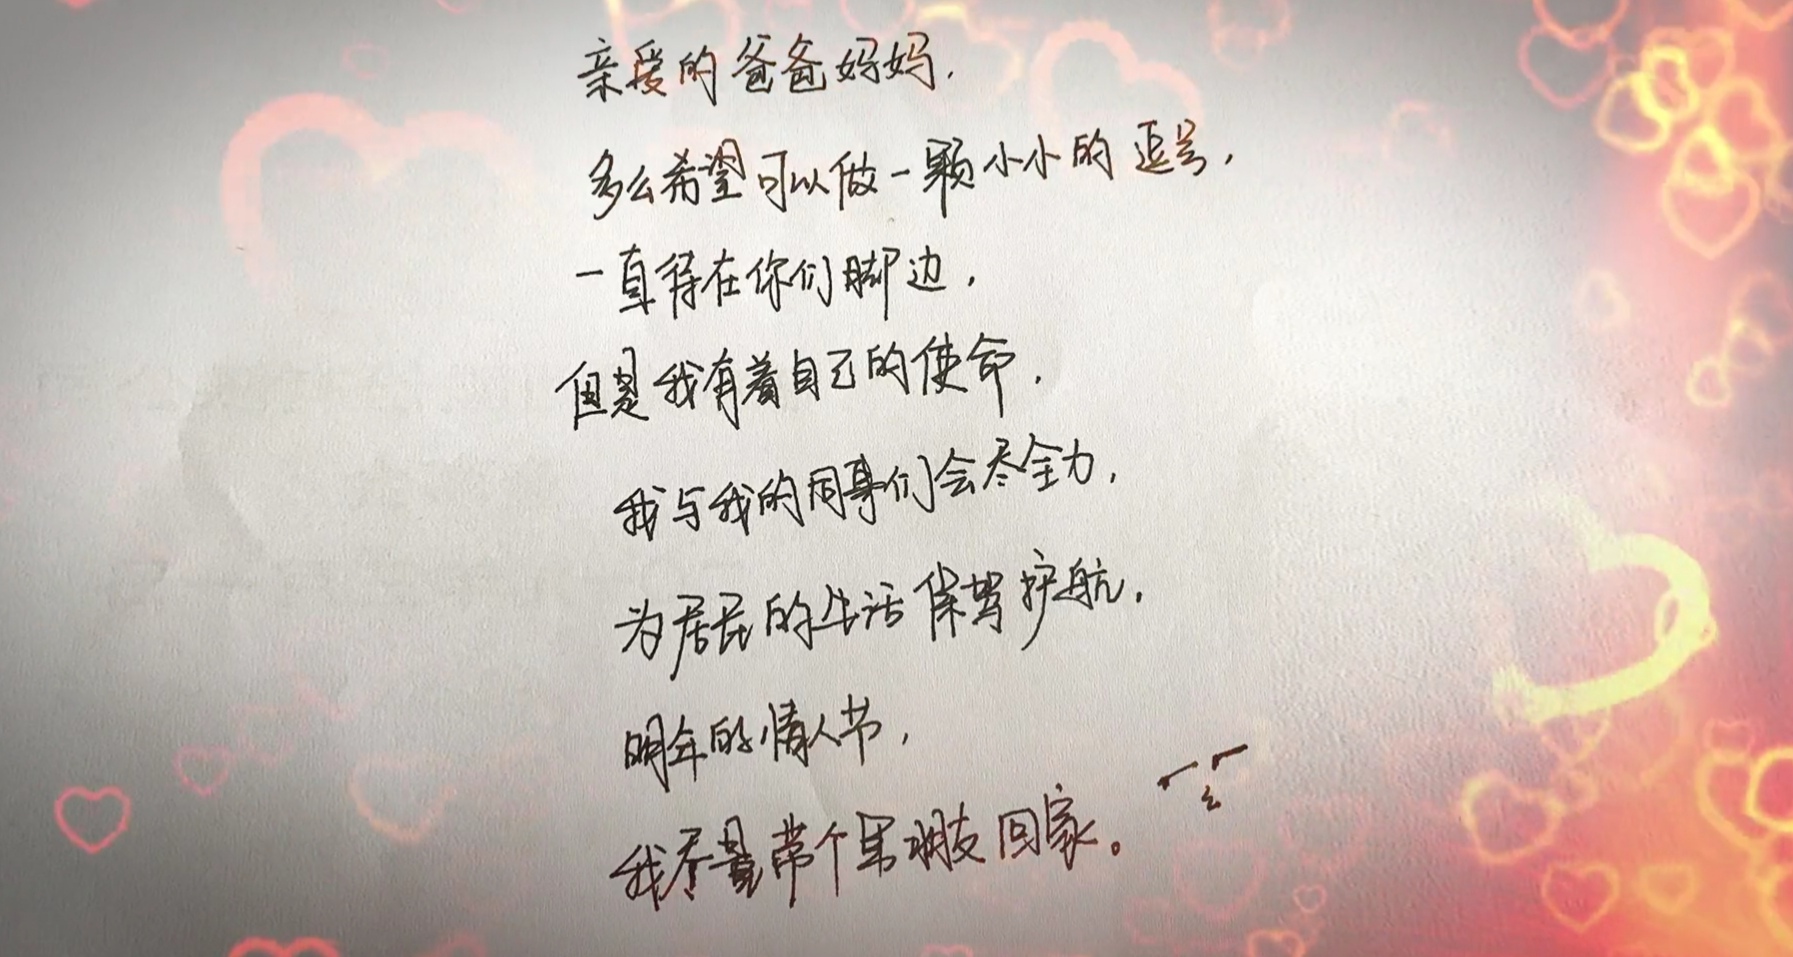 亲爱的爸爸妈妈,
多么希望可以做一颗小小的逗号,
一直待在你们脚边,
但是我有着自己的使命,
我与我的同事们会尽全力,
为居民的生活保驾护航,
明年的情人节,
我尽量带个男朋友回家。